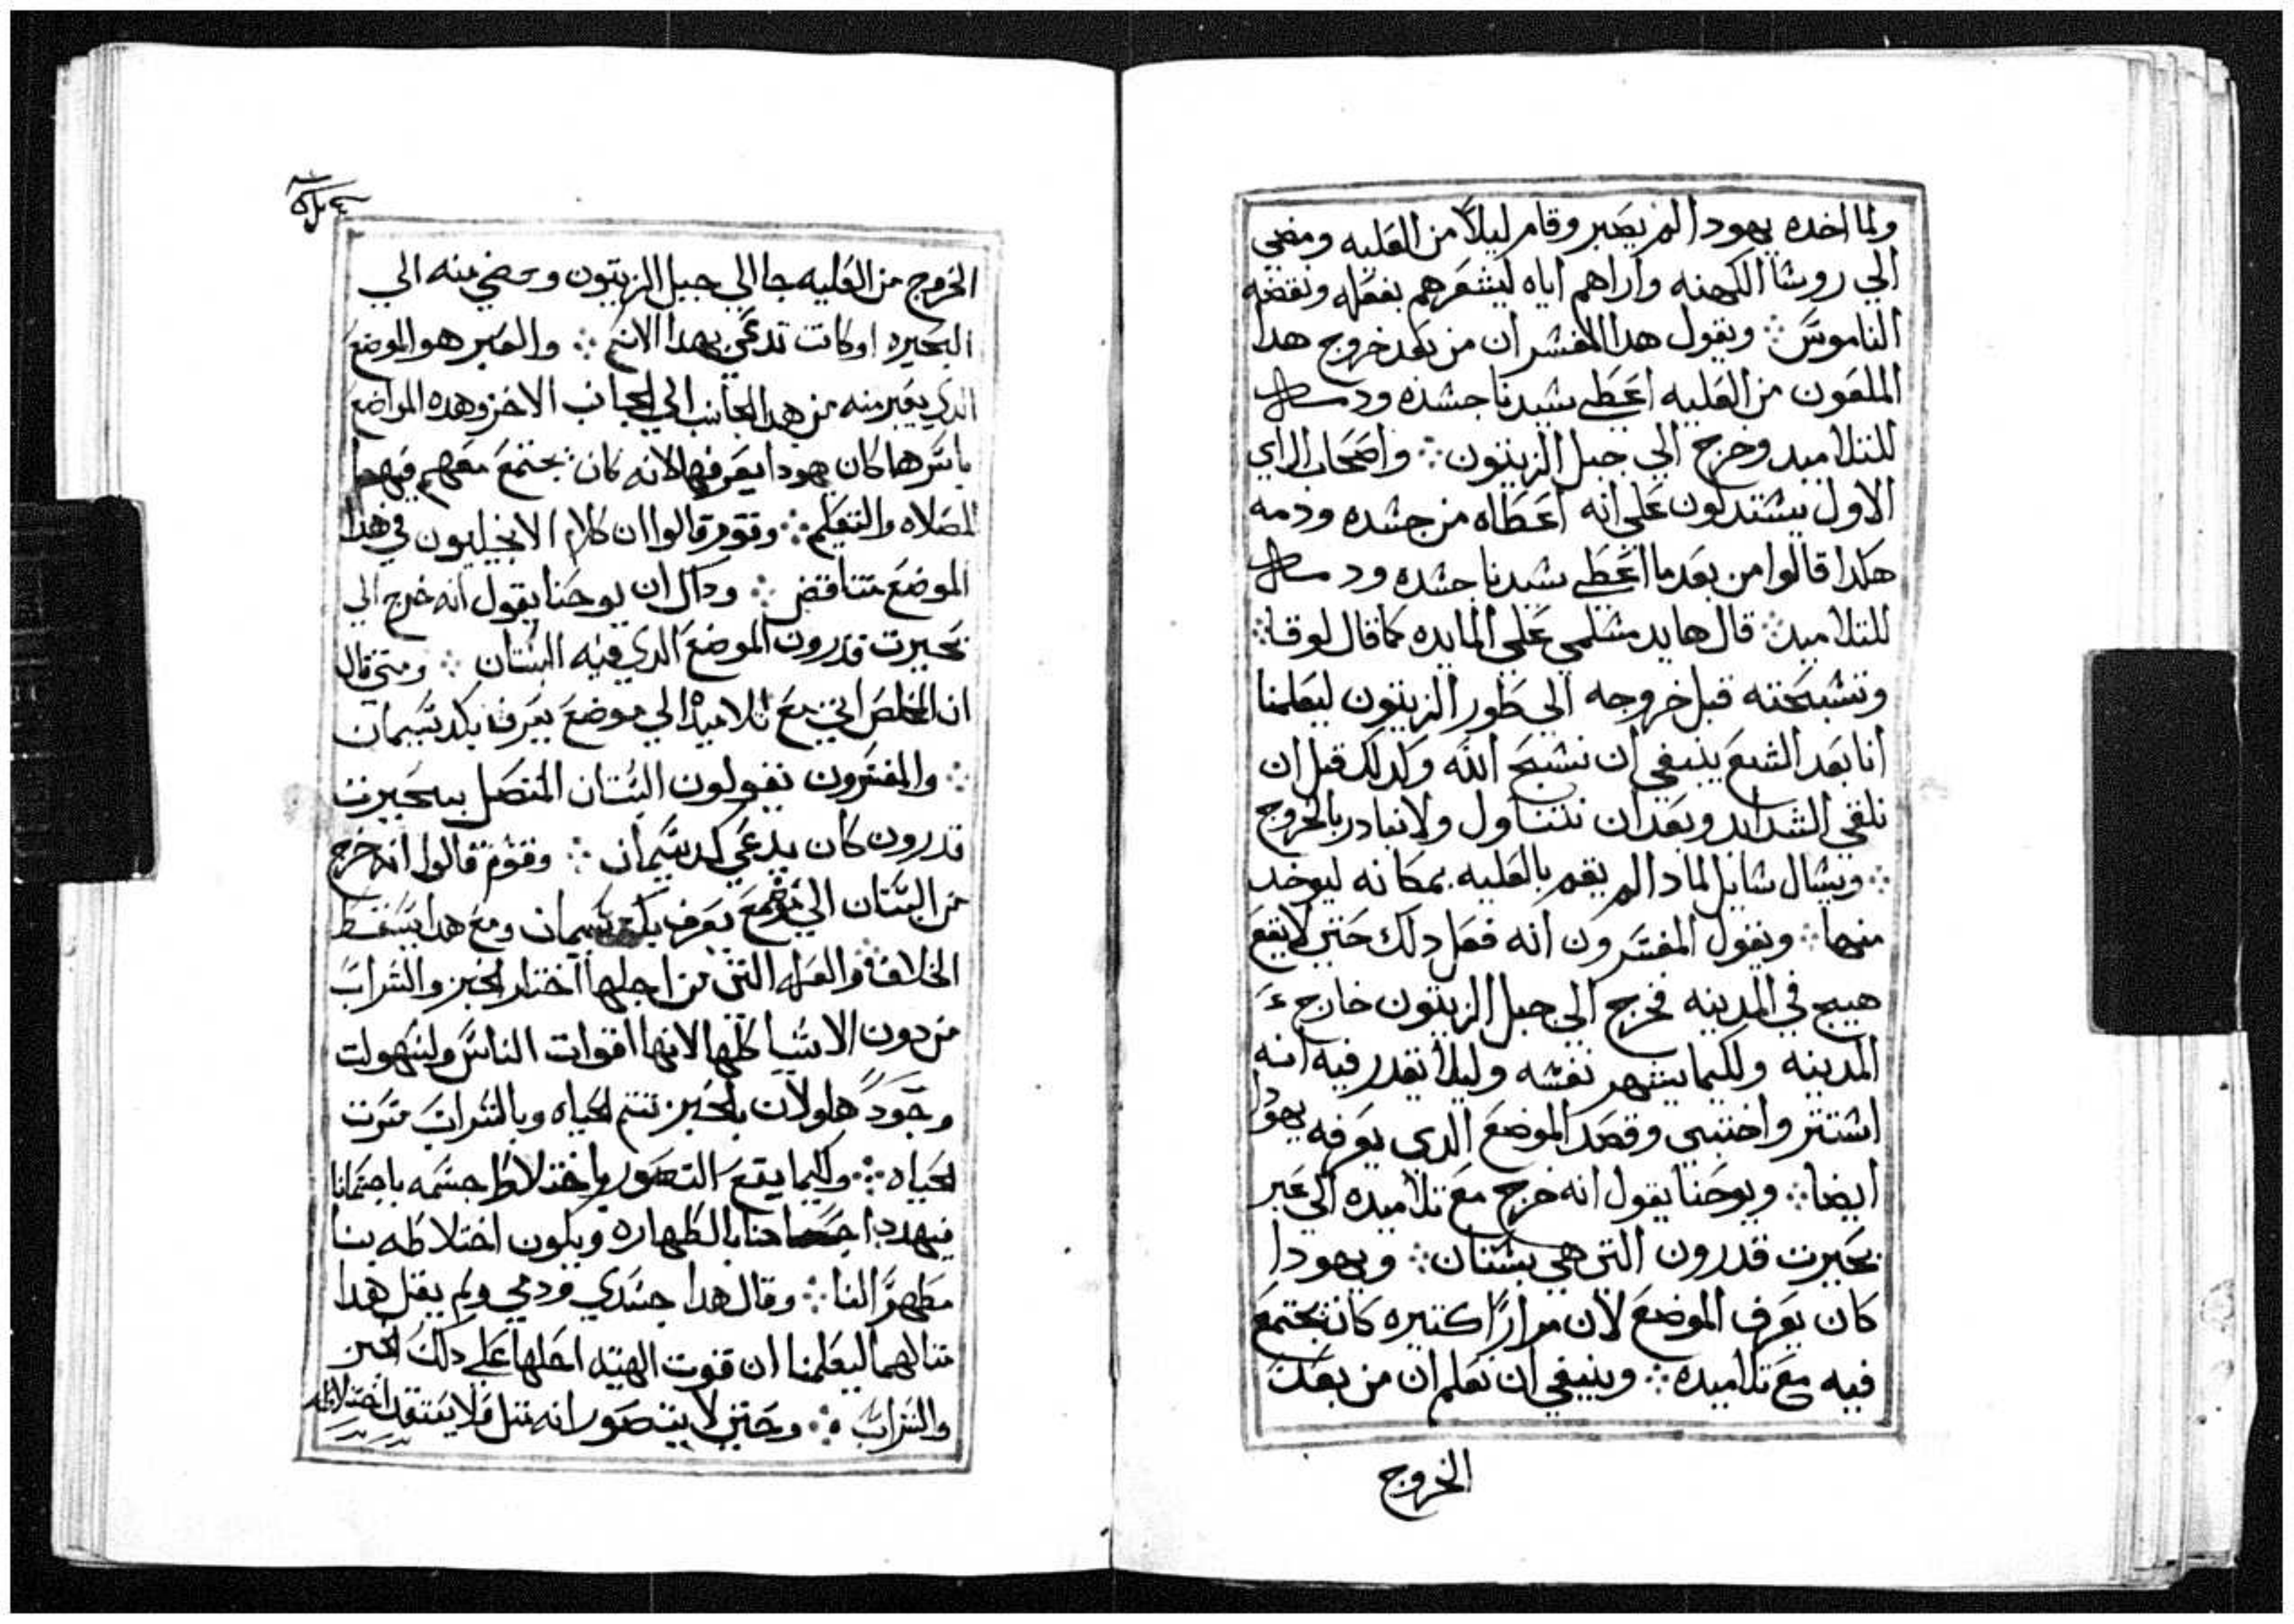 ولما اخده يهودا لم يصبر وقام ليلاً من العليه ومضي
الي روسا الكهنه واراهم اياه ليشعرهم بفعله ونقضه
الناموس ⁘ ونقول هدا المفسر ان من بعد خروج هدا
الملعون من العليه اعطي سيدنا جسده ودمه
للتلاميد وخرج الي جبل الزيتون ⁘ واصحاب الراي
الاول يستدلون علي انه اعطاه من جسده ودمه
هكدا قالوا من بعد ما اعطي سيدنا جسده ودمه
للتلاميد ⁘ قال ها يد مسلمي علي المايده كما قال لوقا ⁘
وتسبحته قبل خروجه الي طور الزيتون ليعلمنا
انا بعد الشبع ينبغي ان نسبح الله وكدلك قبل ان
نلقي الشدايد وبعد ان نتناول ولا نبادر بالخروج
⁘ ويسال سايل لمادا لم يقم بالعليه بمكانه ليوخد
منها ⁘ ونقول المفسرون انه فعل دلك حتي لا يقع
هيج في المدينه فخرج الي جبل الزيتون خارج ء
المدينه ولكيما يشهر نفسه وليلا نقدر فيه انه
استتر واختبي وقصد الموضع الدي يعرفه يهودا
ايضا ⁘ ويوحنا يقول انه خرج مع تلاميده الي عبر
بحيرت قدرون التي هي بستان ⁘ ويهودا
كان يعرف الموضع لان مرارًا كتيره كان يجتمع
فيه مع تلاميده ⁘ وينبغي ان نعلم ان من بعد
الخروج
الخروج من العليه جا الي جبل الزيتون ومضي منه الي
البحيره او كانت تدعي بهدا الاسم ⁘ والعبر هو الموضع
الدي يعبر منه من هدا الجانب الي الجانب الاخر وهده المواضع
باسرها كان يهودا يعرفها لانه كان يجتمع معهم فيهما
للصلاه والتعليم ⁘ وقوم قالوا ان كلام الانجيليون في هدا
الموضع متناقض ⁘ وداك ان يوحنا يقول انه خرج الي
بحيرت قدرون الموضع الدي فيه البستان ⁘ ومتي قال
ان المخلص اتي مع تلاميده الي موضع يعرف بكدسيمان
⁘ والمفسرون نقولون البستان المتصل ببحيرت
قدرون كان يدعي كدسيمان ⁘ وقوم قالوا انه خرج
من البستان الي موضع يعرف بكدسيمان ومع هدا يسقط
الخلاف ⁘ والعله التي من اجلها اختار الخبز والشراب
من دون الاشيا كلها لانها اقوات الناس ولسهولت
وجودها ولان بالخبز تتم الحياه وبالشراب مسرت
الحياه ⁘ ولكيما يقع التصور باختلاط جسمه باجسامنا
فيهدب اجسامنا بالطهاره ويكون اختلاطه بنا
مطهرًا لنا ⁘ وقال هدا جسدي ودمي ولم يقل هدا
متالهما ليعلمنا ان قوت الهيته احلها علي دلك الخبز
والشراب ⁘ وحتي لا يتصور انه متل فلا يعتقد اختلاطه